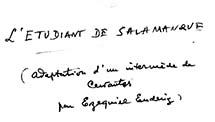 L'ETUDIANT DE SALAMANQUE
(adaptation d'un intermède de
Cervantes
par Ezequiel Endériz)